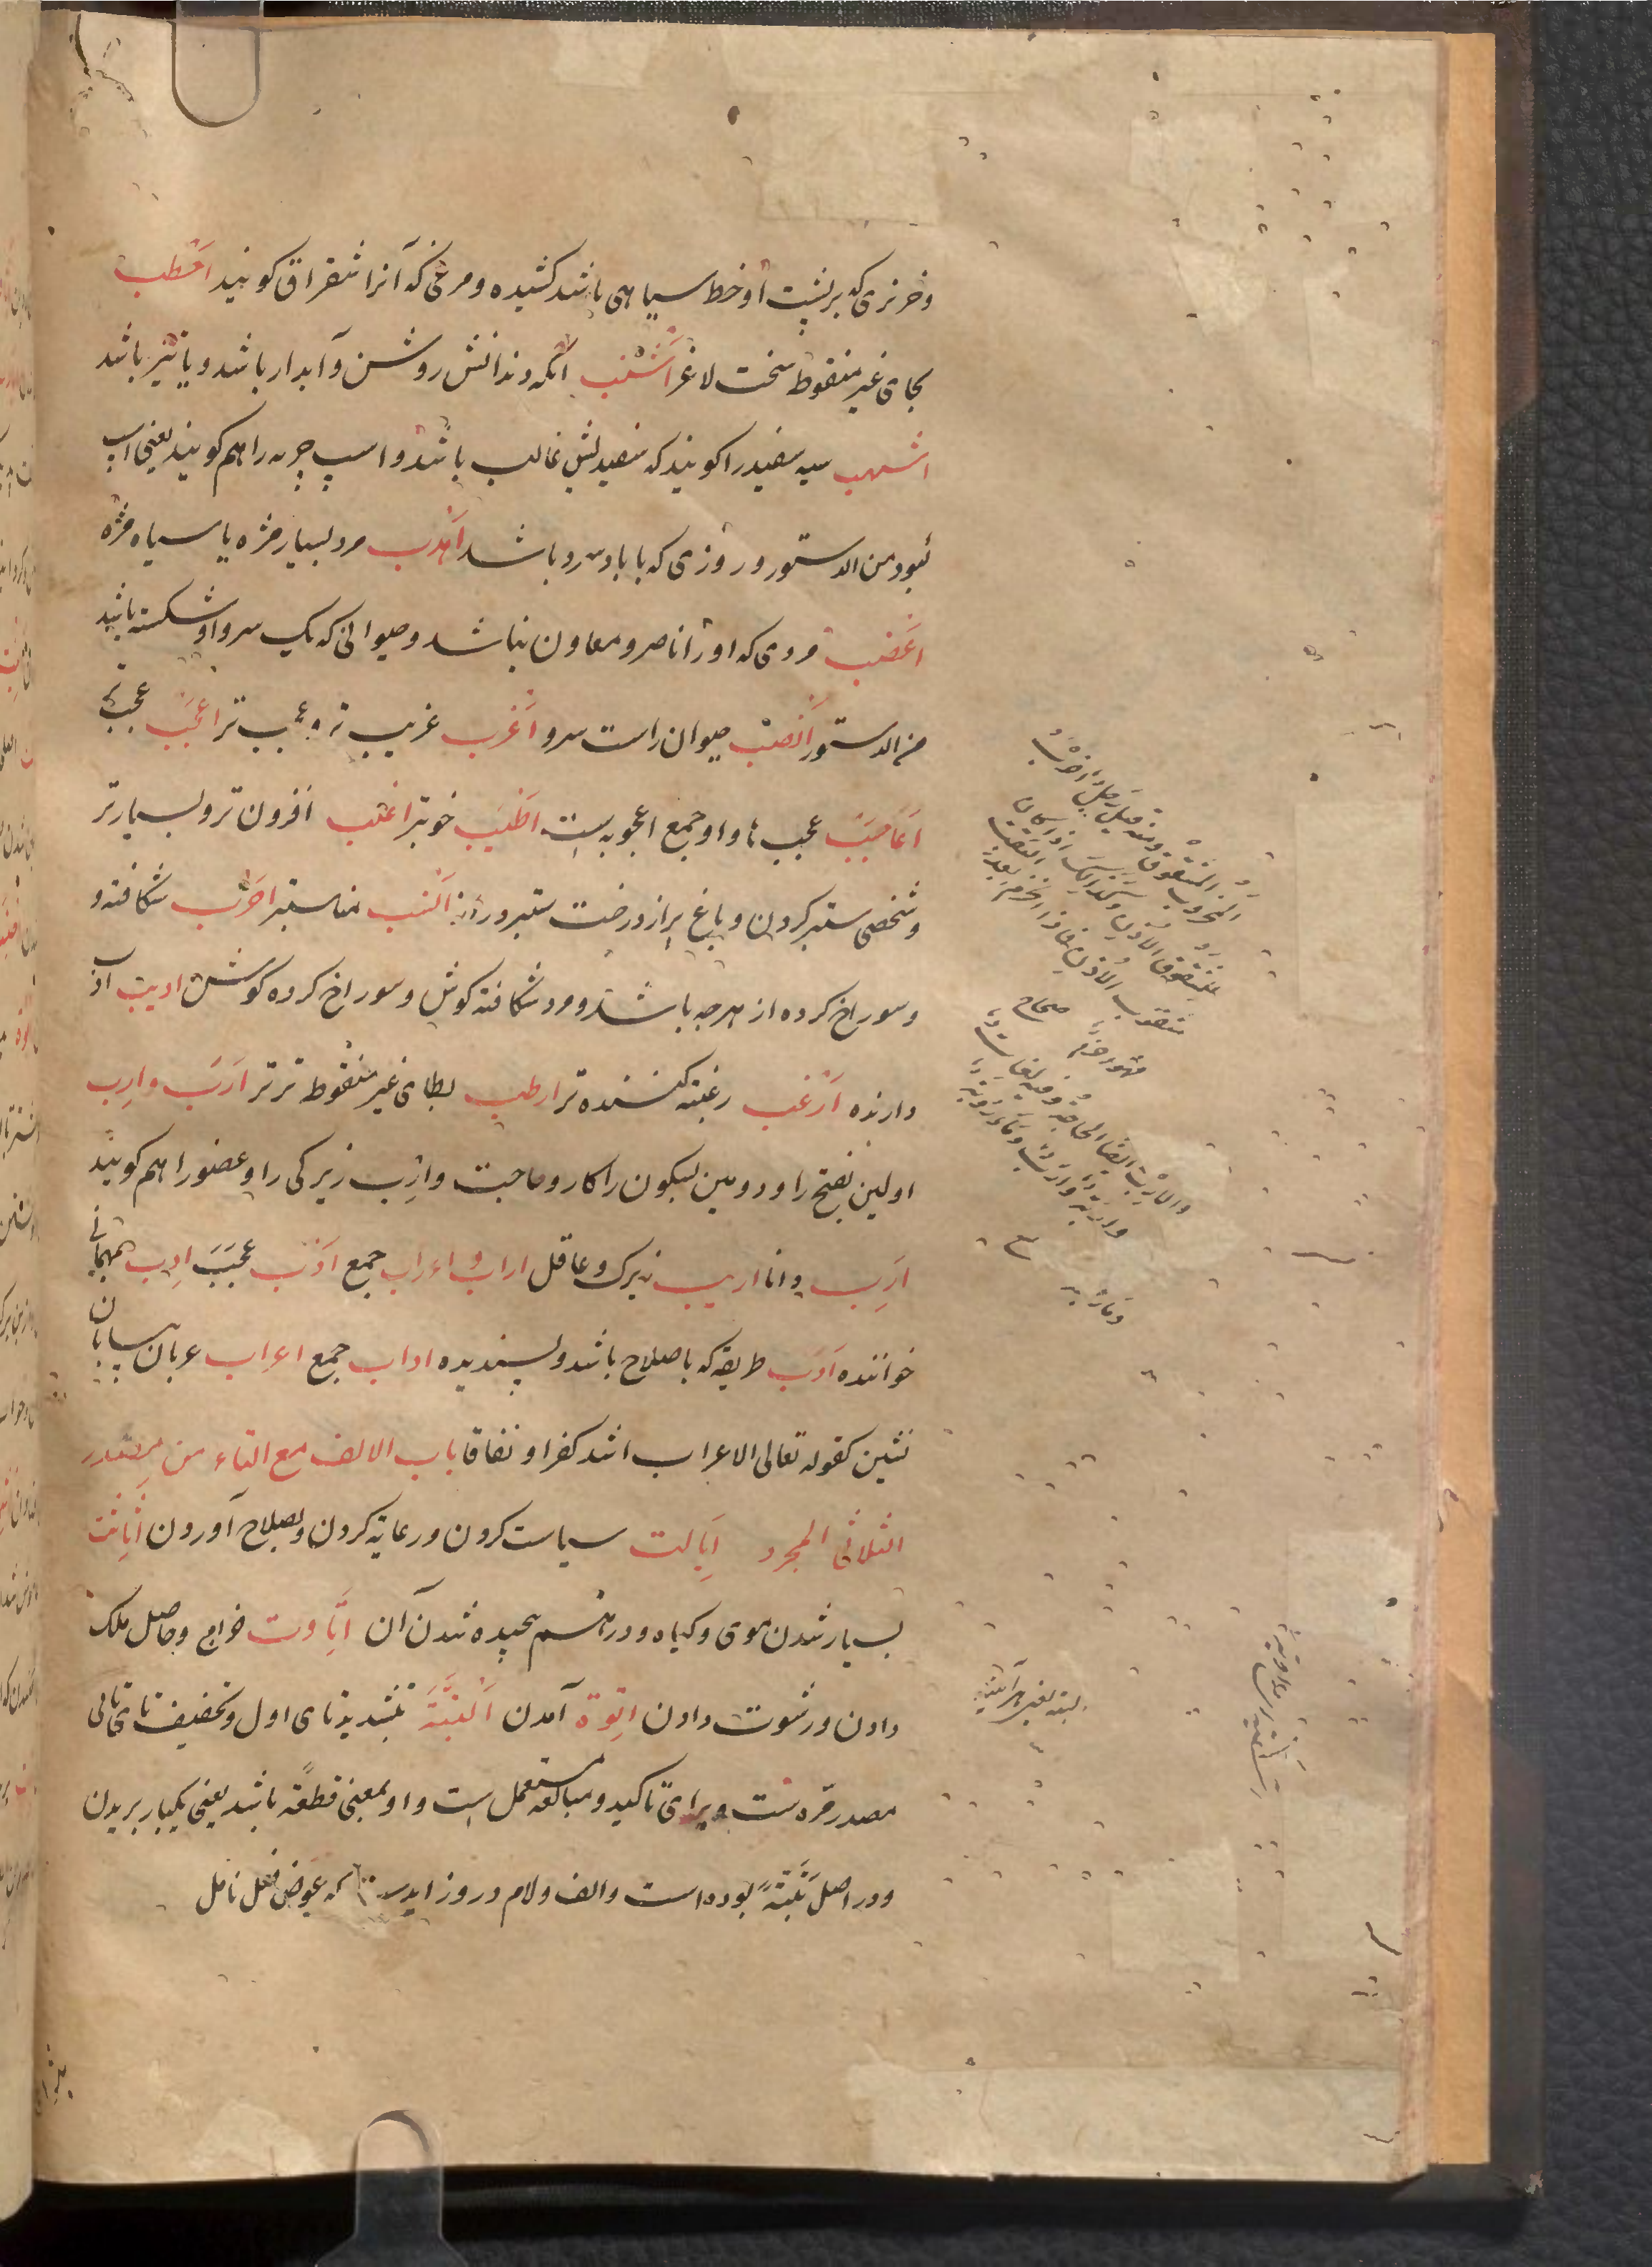 و خر نری که بر پشت او خط سیاهی باشد کشیده و مرغی که آنرا شقراق کویند اخطب
بجای غیر منقوط سخت لاغر اشنب آنکه دندانش روشن و آبدار باشد و یا تیز باشد
اشهب سیه سفید را کویند که سفیدیش غالب باشد و اسپ چرمه را هم کویند یعنی اسپ
کبود من الدستور و روزی که با باد سرد باشد اهدب مرد بسیار مژه یا سیاه مژه
اعضب مردی که او را ناصر و معاون نباشد و حیوانی که یک سرو او شکسته باشد
من الدستور انصب حیوان راست سرو اغرب غریب تر و عجب تر اعجب عجب تر
اعاجیب عجب ها و او جمع اعجوبه است اطیب خوبتر اغلب افزون تر و بسیارتر
و شخصی ستبر کردن و باغ پر از درخت ستبر و دراز انسب مناسبتر اخرب شکافته و
و سوراخ کرده از هر چه باشد و مرد شکافته کوش و سوراخ کرده کوش ادیب ادب
دارنده ارغب رغبت کننده تر ارطب بطای غیر منقوط تر تر ارب و ارب
اولین بفتح را و دومین بسکون را کار و حاجت و ارب زیرکی را و عضو را هم کویند
ارب دانا اریب زیرک و عاقل اراب و اءراب جمع ادب عجب ادب بمهمانی
خواننده ادب طریقه که باصلاح باشد و پسندیده اداب جمع اعراب عربان بیابان
نشین کقوله تعالی الاعراب اشد کفرا و نفاقا باب الالف مع التاء من مصدر
الثلاثی المجرد ایالت سیاست کردن و رعایة کردن و بصلاح آوردن اثاثت
بسیار شدن موی و کیاه و در هم پیچیده شدن آن اتاوت خراج و حاصل ملک
دادن و رشوت دادن اتوة آمدن البتة بتشدید تای اول و تخفیف تای ثانی
مصدر مره است و برای تاکید و مبالغه مستعمل است و او بمعنی قطعة باشد یعنی یکبار بریدن
و در اصل بتة بوده است و الف و لام درو زاید است که عوض فعل ناصل
المخروب المشقوق ومنه قیل رجل اخرب
للمشقوق الاذن وکذلک اذا کان
مثقوب الاذن فاذا انخرم بعد الثقب
فهو اخرم صحاح
والارب ایضا الحاجة وفیه لغات